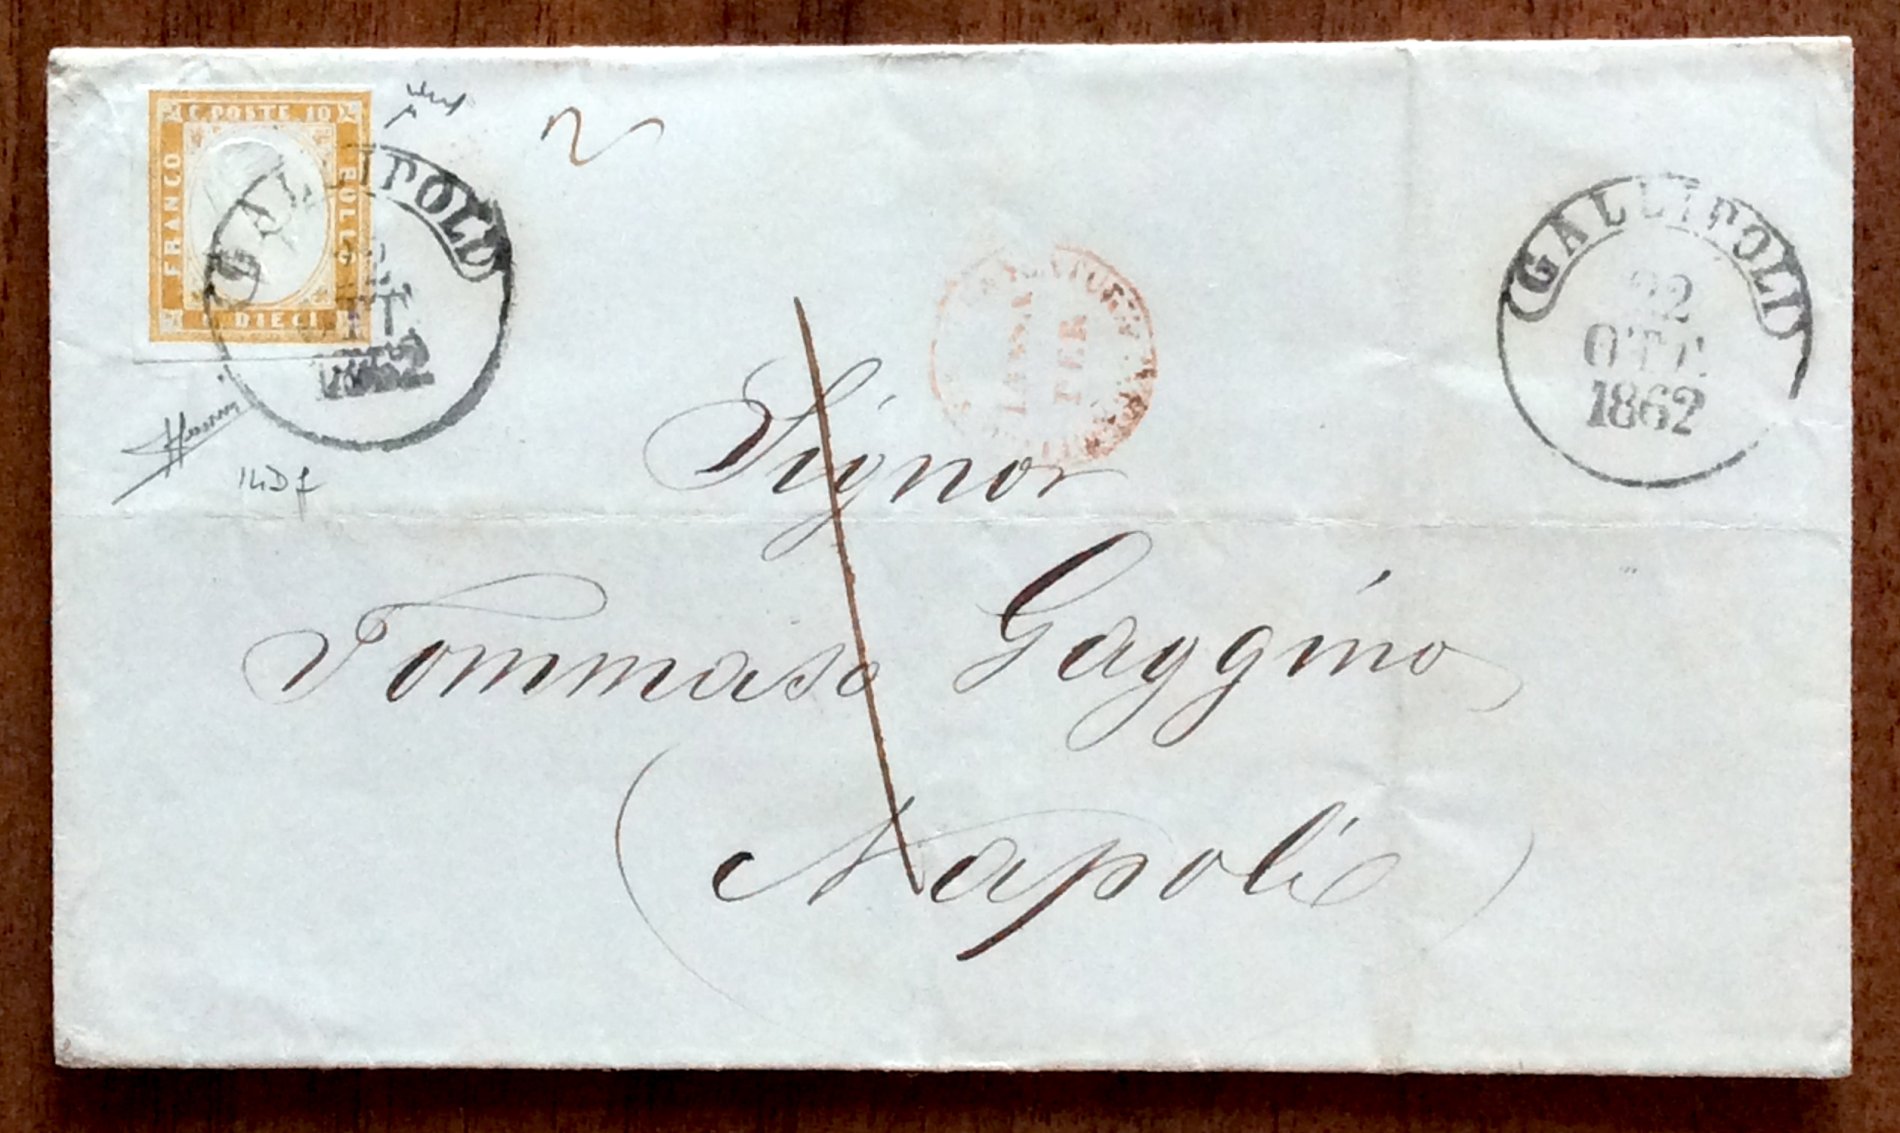 C. POSTE 10
FRANCO
BOLLO
C. DIECI
GALLIPOLI
22
OTT.
1862
14Df
GALLIPOLI
22
OTT.
1862
Signor
Tommaso Gaggino
Napoli